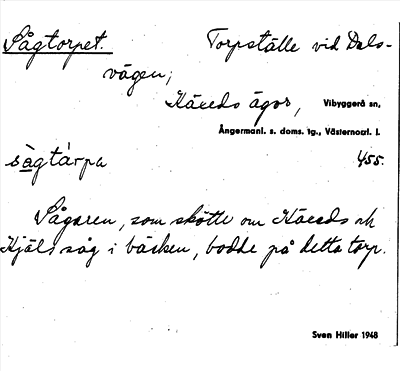 Sågtorpet. Torpställe vid Dals-
vägen,
Käxeds ägor, Vibyggerå sn,
Ångermanl. s. doms. tg., Västernorrl. l.
sàgtárpa 455.
Sågaren, som skötte om Käxeds och
Kjäls såg i bäcken, bodde på detta torp.
Sven Hiller 1948